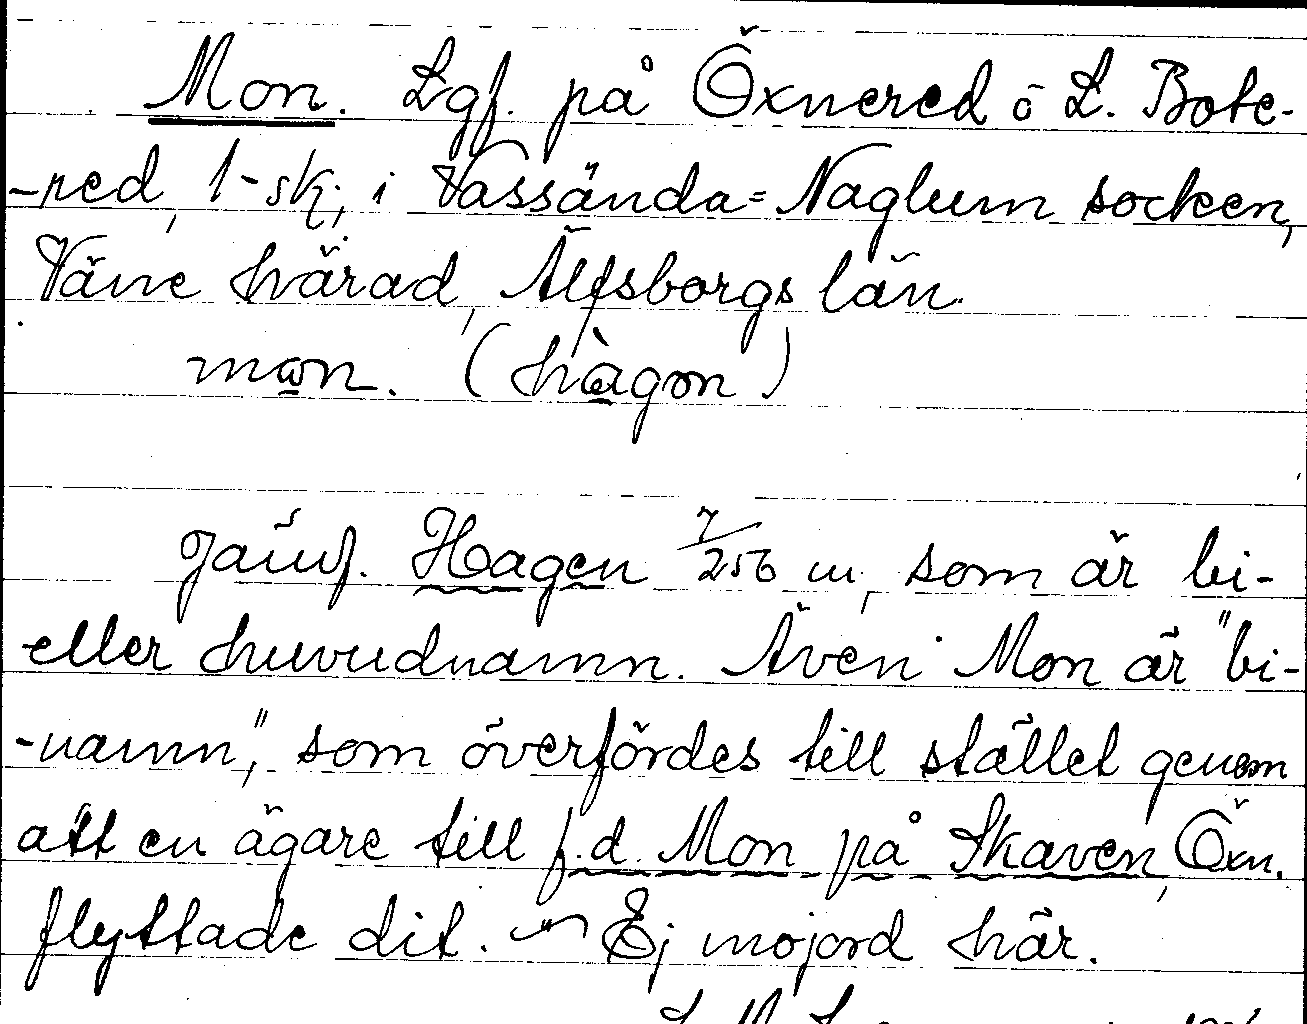 Mon. Lgf. på Öxnered o L. Bote-
-red, 1-sk., i Vassända=Naglum socken,
Väne härad, Älfsborgs län.
mɷn. (hàgɷn)
Jämf. Hagen 7/256 m, som är bi-
eller huvudnamn. Även Mon är "bi-
-namn", som överfördes till stället genom
att en ägare till f.d. Mon på Skaven, Öxn.
flyttade dit. — Ej mojord här.